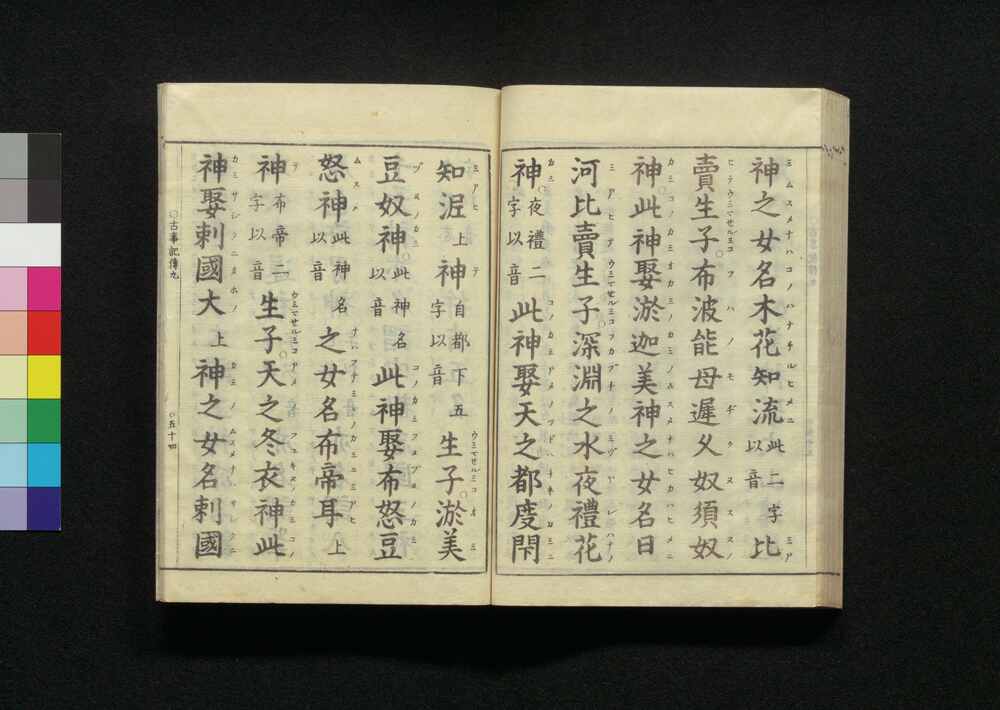 神之女名木花知流此二字以音比
賣生子布波能母遲久奴須奴
神此神娶淤迦美神之女名日
河比賣生子深淵之水夜禮花
神夜禮二字以音此神娶天之都度閇
知泥上神自都下五字以音生子淤美
豆奴神此神名以音此神娶布怒豆
怒神此神名以音之女名布帝耳上
神布帝二字以音生子天之冬衣神此
神娶刺國大上神之女名刺國
古事記傳九
五十四